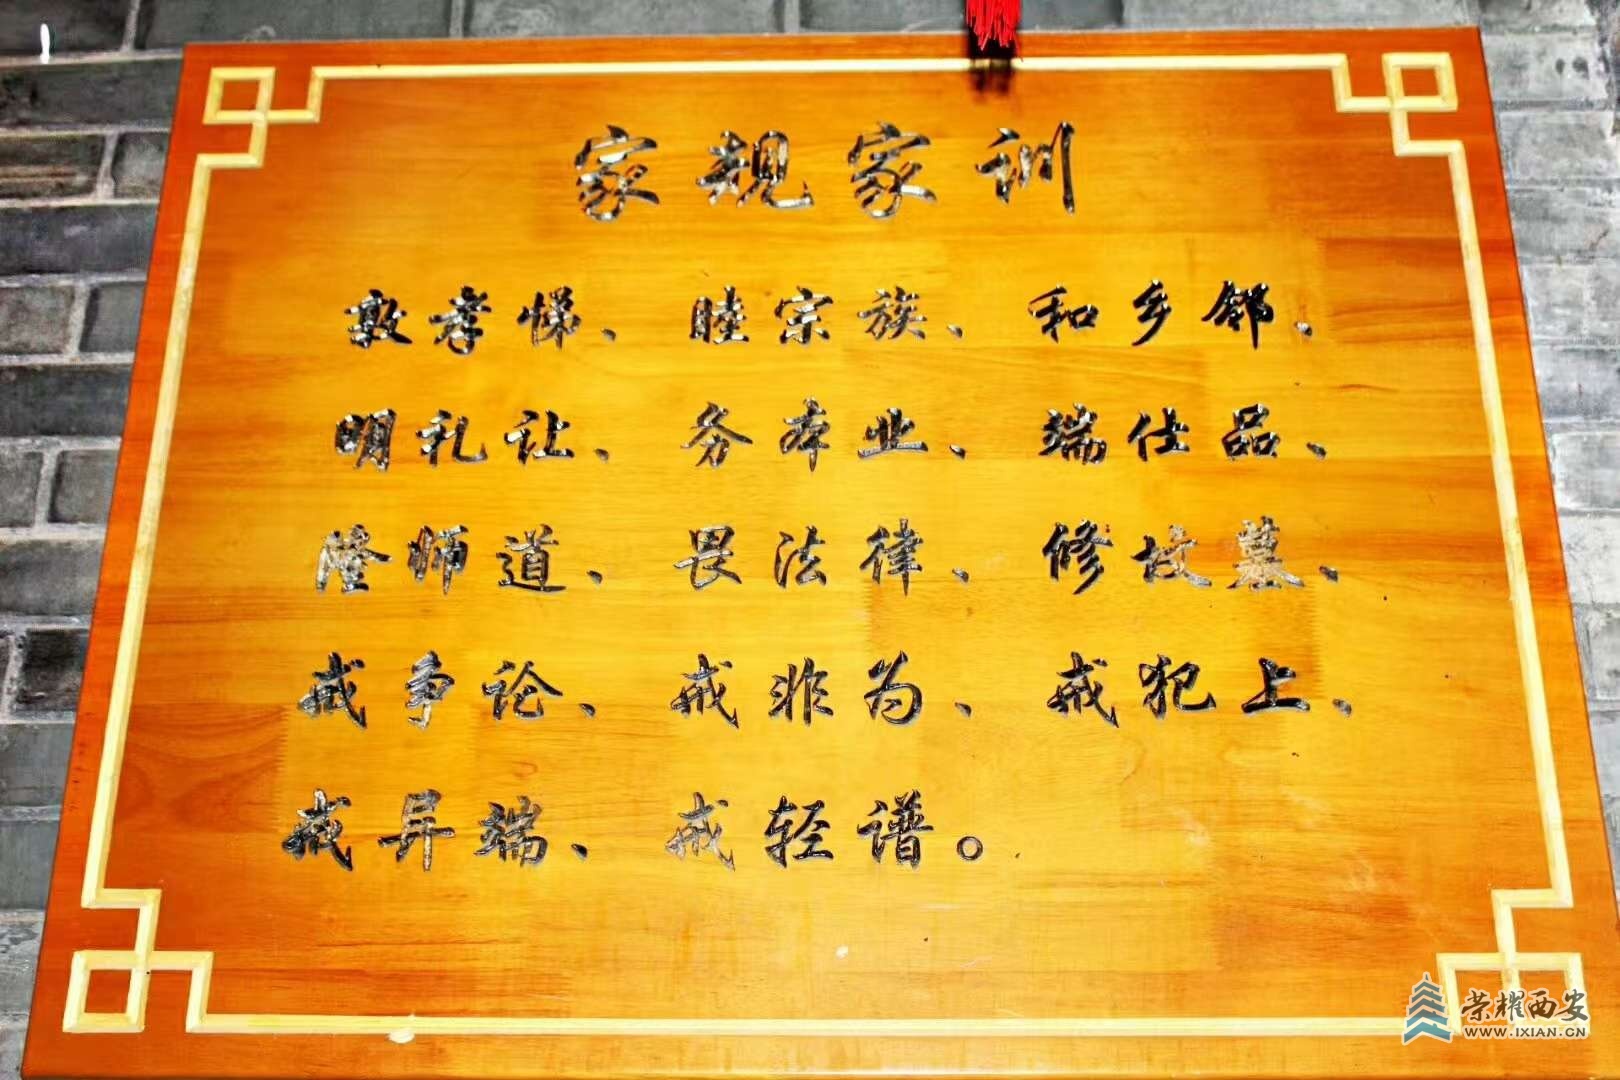 家规家训
敦孝悌、睦宗族、和乡邻、
明礼让、务本业、端仕品、
隆师道、畏法律、修坟墓、
戒争论、戒非为、戒犯上、
戒异端、戒轻谱。
荣耀西安
WWW.IXIAN.CN